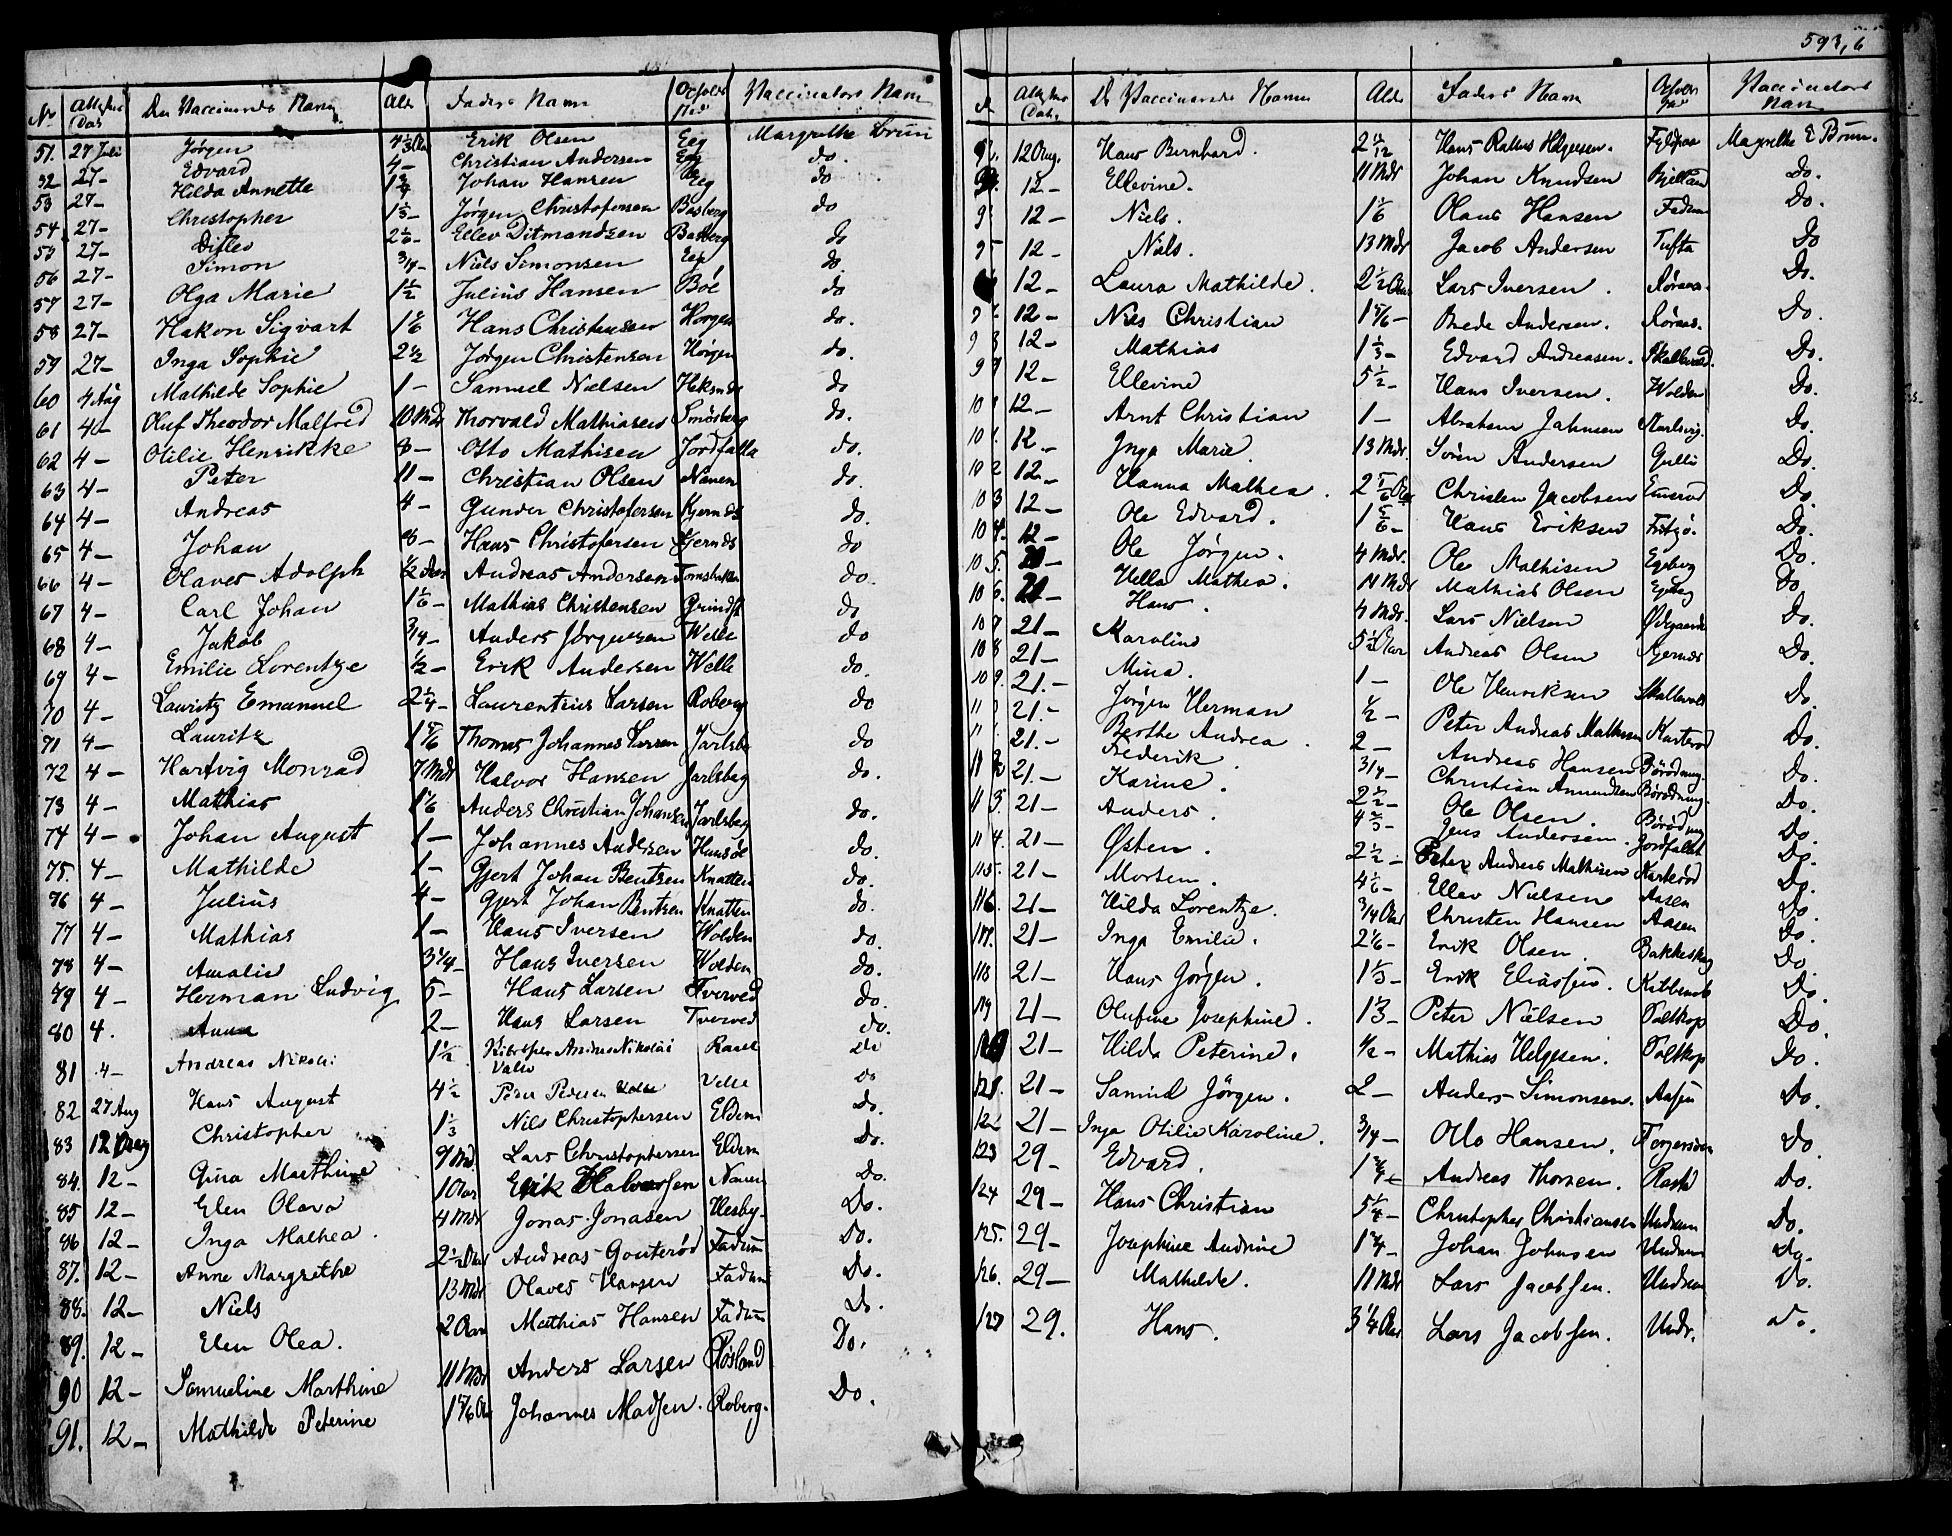 593,6
No Attestens Dat. Den Vaccinerede Navn Alder Faders Navn Opholdssted Vaccinators Navn
51. 27 Juli Jørgen 4 1/3 Aar Erik Olsen Eeg Margrethe Brun
52 27- Edvard 4- Christian Andersen Eeg do.
53 27- Hilda Annette 1 3/4 Johan Hansen Eeg do
54 27- Christopher 1 1/3- Jørgen Christofersen Basberg do
55 27- Ditlev 2 1/6- Ellev Ditmandsen Basberg do
56 27- Simon 3/4- Niels Simonsen Eeg do.
57 27- Olga Marie 1 1/2 Julius Hansen Böe do
58 27- Hakon Sigvart 1 1/6 Hans Christensen Horgen do.
59 27- Inga Sophie 2 1/2 Jørgen Christensen Horgen do.
60 4 Aug Mathilde Sophie 1- Samuel Nielsen do
61 4- Oluf Theodor Malfred 10 Mdr Thorvald Mathiasen Smörberg do.
62 4- Otilie Henrikke 8- Otto Mathisen Jordfalla do.
63 4- Peter 11- Christian Olsen Nauen do.
64 4- Andreas 4- Gunder Christofersen Kjernds do.
65 4- Johan 8- Hans Christofersen Kjernds do
66 4- Olaves Adolph 1/2 Aar Andreas Andersen Tomsbakken do.
67 4- Carl Johan 1 1/6- Mathias Christensen Grindst do
68 4- Jakob 3/4- Anders Jørgensen Welle do
69 4- Emilie Lorentze 1/2- Erik Andersen Welle do.
70 4- Lauritz Emanuel 2 1/4- Laurentius Larsen Roberg do
71 4- Lauritz 1 5/6 Thomas Johannes Larsen Jarlsbg do
72 4- Hartvig Monrad 7 Mdr Halvor Hansen Jarlsbag do.
73 4- Mathias 1 1/6 Anders Christian Johansen Jarlsbag do.
74 4- Johan August 1- Johannes Andersen do.
75. 4- Mathilde 1- Gjert Johan Bentzen Knatten do.
76 4- Julius 4- Gjert Johan Bentzen Knatten do.
77 4- Mathias 1- Hans Iversen Wolden do.
78 4- Amalie 3 1/4- Hans Iversen Wolden do.
79 4- Herman Ludvig 5- Hans Larsen Tverved do.
80 4. Anna 2- Hans Larsen Tverved do.
81 4- Andreas Nikolai 1 1/2 Andreas Nikolai do
82 27 Aug Hans August 4 1/2 Peder Pedersen Velle do
83 12 Aug Christopher 1 1/3 Nils Christophersen Eldem Do.
84. 12- Gina Marthine 9 Md. Lars Christophersen Eldem Do.
85 12- Elen Olava 1 Aar Erik Halvorsen Nauen Do.
86 12- Inga Mathea. 4 Mdr Jonas Jonasen Hesby- Do.
87. 12- Anne Margrethe 2 1/2 Aar Andreas Gouterød Fadum Do.
88. 12- Niels 13 Mdr Olaves Hansen Fadum Do.
89. 12- Elen Olea. 2 Aar Mathias Hansen Fadum Do.
90 12- Samueline Marthine 11 Mdr Anders Larsen Røsland Do.
91. 12- Mathilde Peterine 1 5/6 Aar Johannes Madsen. Roberg. Do.
Attestens Dat. D. Vaccinerede Navn Alder Faders Navn Vaccinators Navn
12 Aug. Hans Bernhard. 2 1/12 Hans Helgesen. Margrethe E Brun.
12- Ellevine. 11 Mdr Johan Knudsen Bjelland Do.
12- Niels. 1 1/6 Olaus Hansen Fadum Do.
12- Niels. 13 Mdr Jacob Andersen Tufta Do
12- Laura Mathilde. 2 1/2 Aar Lars Iversen. Røraas. Do.
12- Niels Christian 1 5/6- Brede Andersen. Røraas. Do.
12- Mathias 1 1/3- Edvard Andreasen. Skallevold. Do.
12- Ellevine 5 1/2- Hans Iversen. Wolden Do.
12- Arnt Christian 1- Abraham Jahnsen Do.
12- Inga Marie. 13 Mdr. Sören Andersen Gulli Do.
102 12- Hanna Mathea. 2 5/6 Aar Christen Jacobsen Do.
103 12- Ole Edvard. 1 5/6- Hans Eriksen Do.
104 12- Ole Jörgen. 4 Mdr. Ole Mathisen Egeberg Do.
105. 20- Hella Mathea. 11 Mdr Mathias Olsen Egeberg Do
106. 21- Hans. 4 Mdr. Lars Nielsen Ødegaarden Do.
107 21- Karoline 5 1/2 Aar Andreas Olsen Kjernds Do.
108 21- Mina. 1- Ole Henriksen Skallevold Do.
109. 21.- Jörgen Herman 1/2- Peter Andreas Mathisen Karterød Do.
21.- Berthe Andrea. 2- Andreas Hansen Do.
21.- Frederik. 3/4- Christian Amundsen Do.
112 21.- Karine. 2 1/2- Ole Olsen. Do.
113. 21- Anders. 4 2/3- Jens Andersen. Jordfallet Do.
114. 21- Østen. 2 1/2- Peter Andreas Mathisen Karterød Do.
115. 21- Morten. 4 1/6- Ellev Nielsen Aasen Do.
116. 21- Hilda Lorentze. 3/4 Aar Christen Hansen Aasen Do.
117. 21- Inga Emilie. 2 1/6- Erik Olsen. Do.
118 21- Hans Jörgen. 1 1/3- Erik Eliassen. Do.
119 21- Olufine Josephine. 1 1/3- Peter Nielsen Foltkop Do.
120 21- Hilda Peterine. 1/2- Mathias Helgesen. Foltkop Do.
121. 21- Samuel Jörgen. 2- Anders Simonsen. Do.
122 21- Inga Otilie Karoline. 3/4- Otto Hansen. Do.
123 29- Edvard. 1 3/4- Andreas Thorsen. Do.
124 29- Hans Christian 5 1/4- Christopher Christiansen Undrum Do.
125. 29- Josephine Andrine 1 3/4- Johan Johnsen Undrum Do.
126. 29- Mathilde. 11 Mdr Lars Jacobsen. Undrum Do.
127 29. Hans. 3 1/4 Aar Lars Jacobsen. Undr. Do.